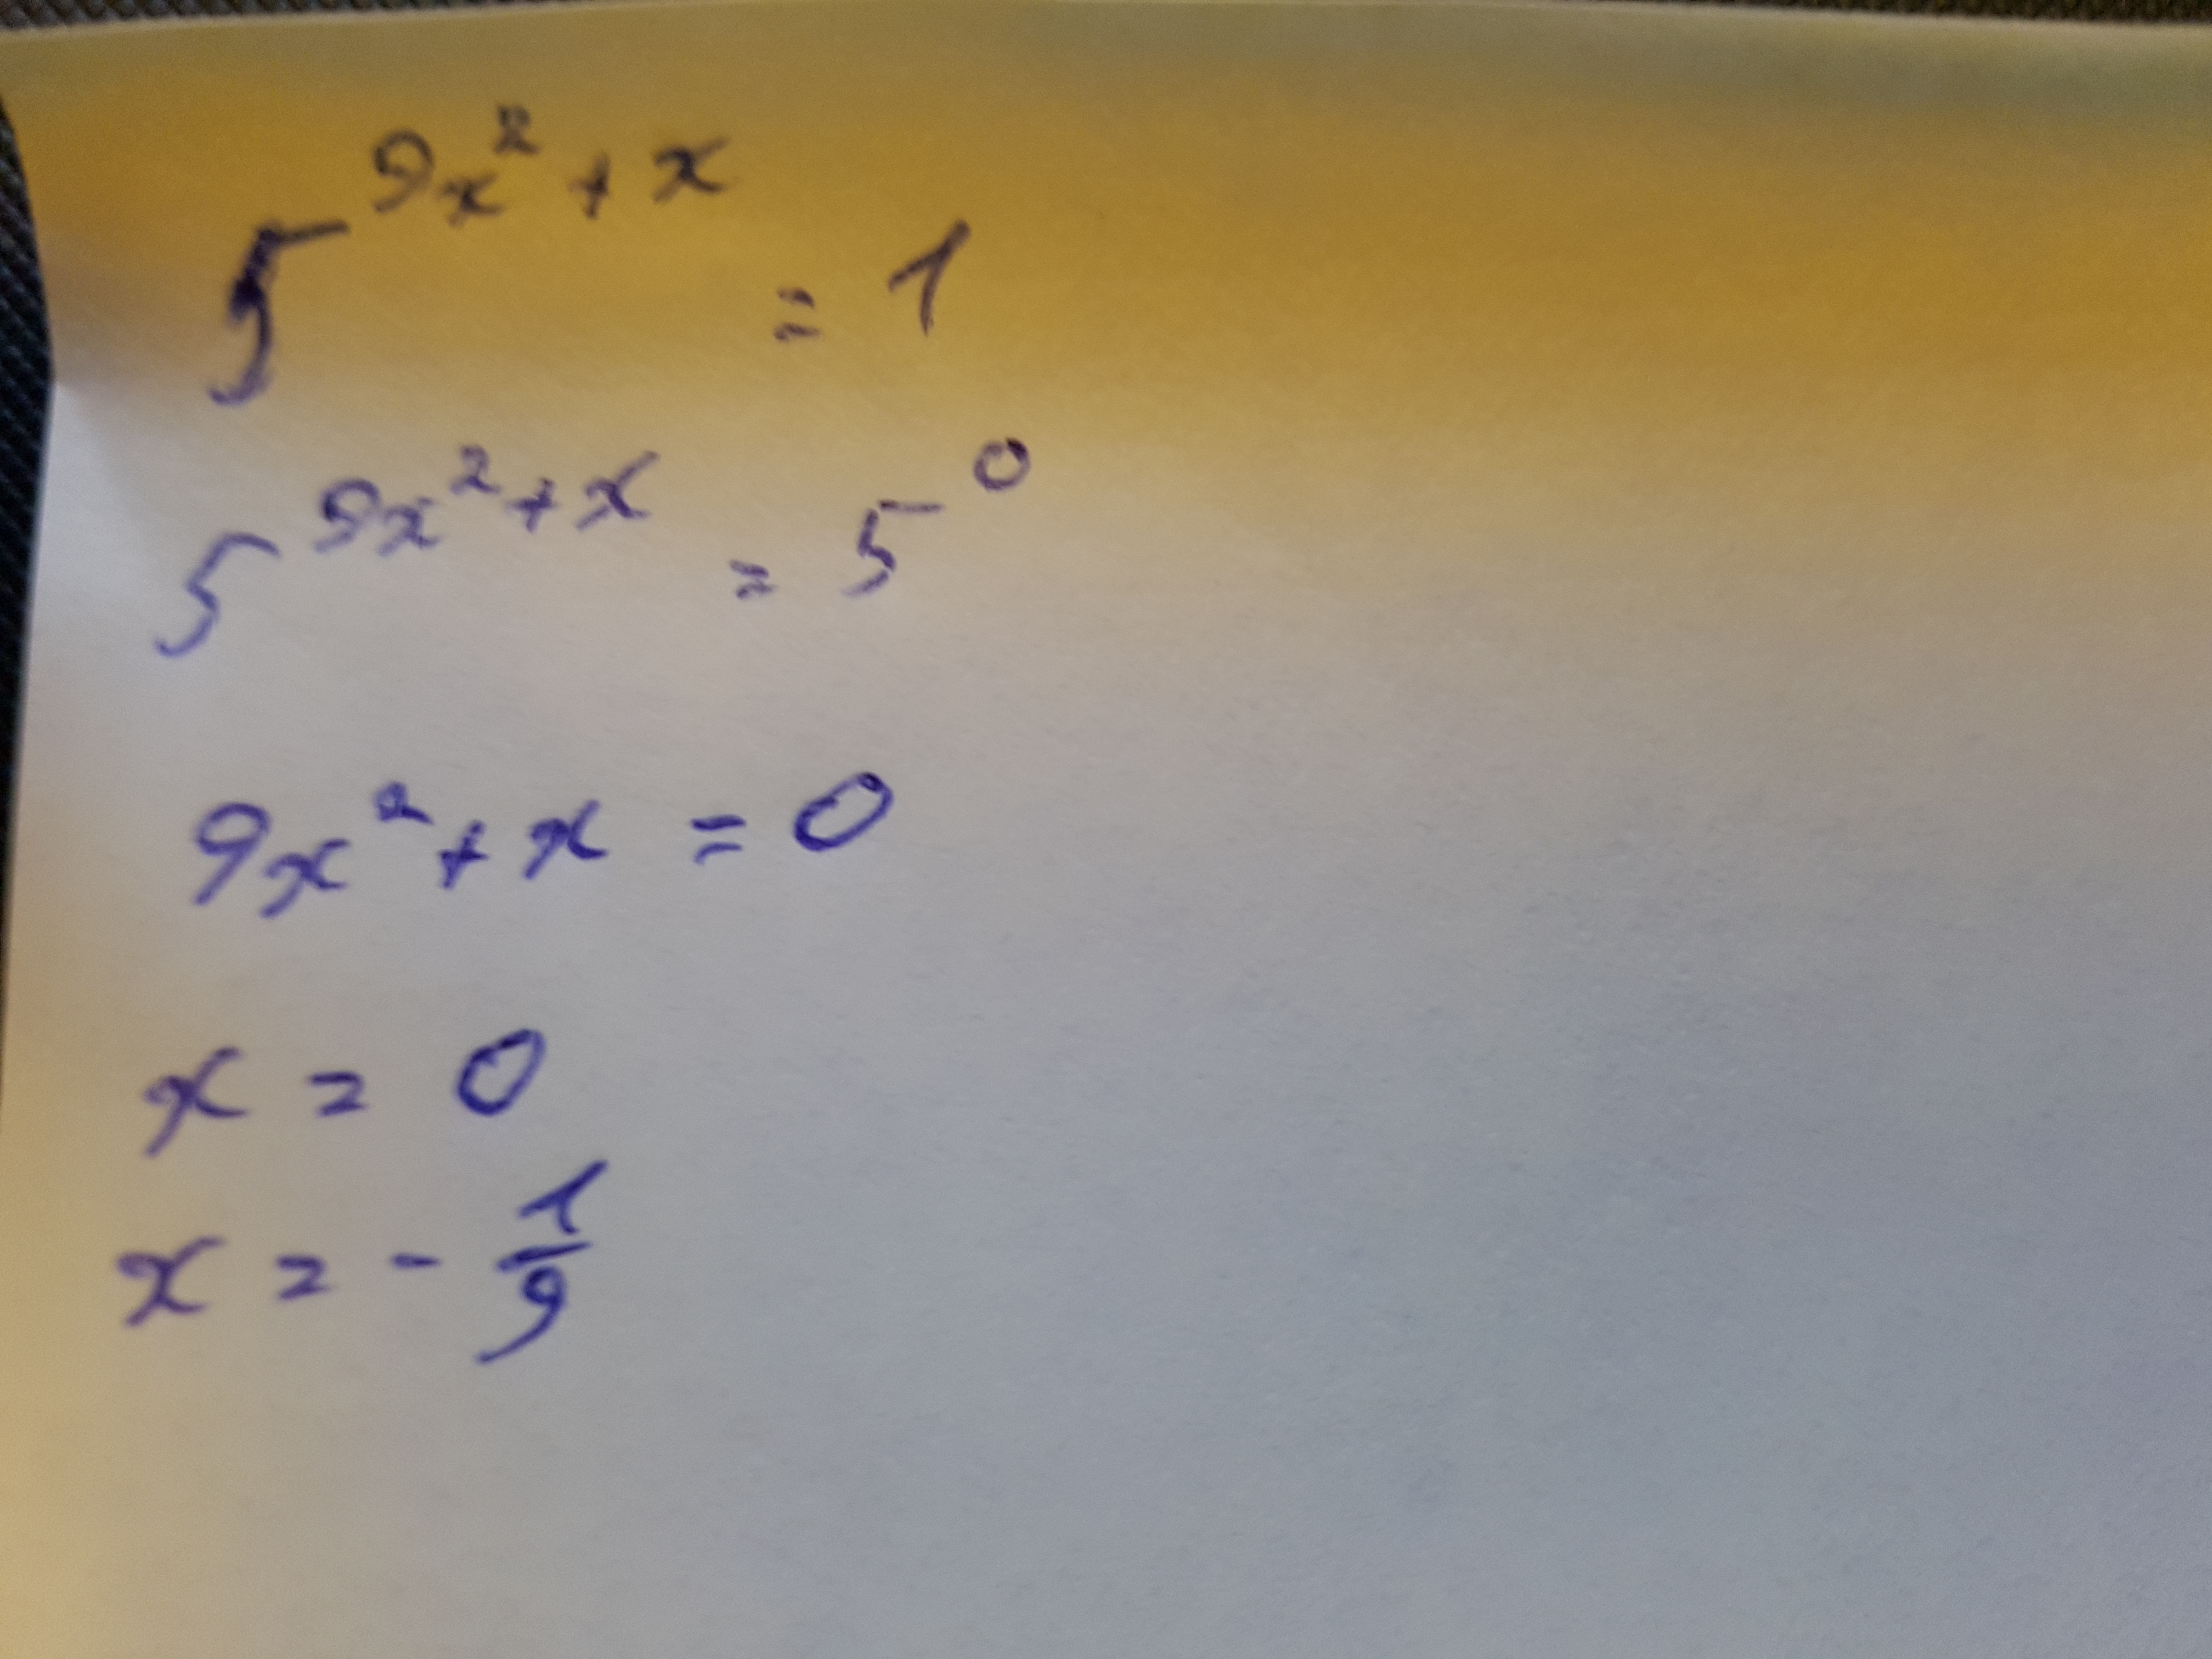 5^{9x^2+x} = 1
5^{9x^2+x} = 5^0
9x^2 + x = 0
x = 0
x = -\frac{1}{9}